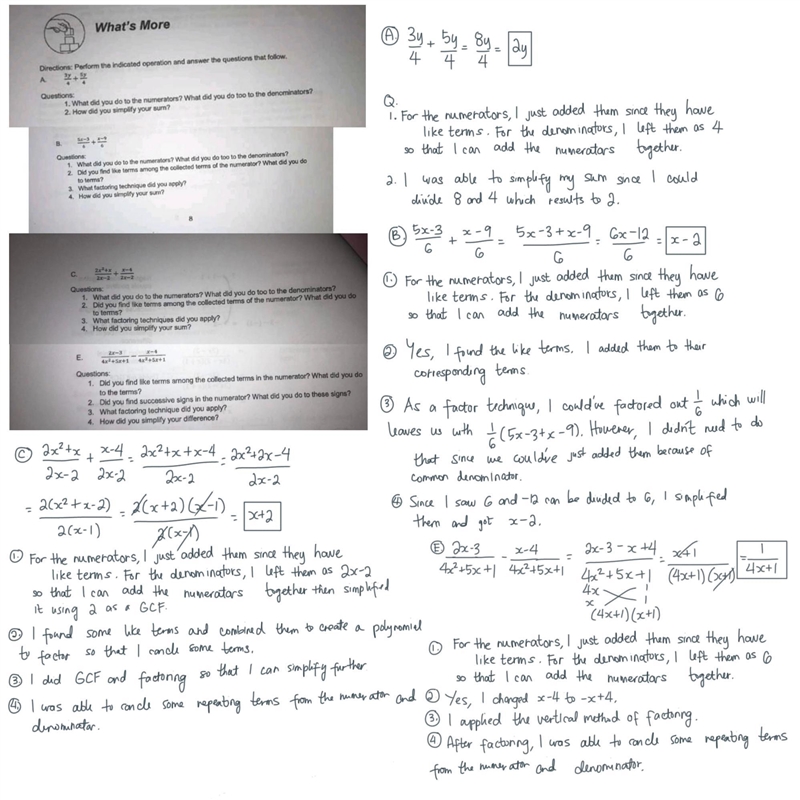 What's More
Directions: Perform the indicated operation and answer the questions that follow.
A. 3y/4 + 5y/4
Questions:
1. What did you do to the numerators? What did you do too to the denominators?
2. How did you simplify your sum?
B. 5x-3/6 + x-9/6
Questions:
1. What did you do to the numerators? What did you do too to the denominators?
2. Did you find like terms among the collected terms of the numerator? What did you do
to terms?
3. What factoring technique did you apply?
4. How did you simplify your sum?
8
C. 2x²+x/2x-2 + x-4/2x-2
Questions:
1. What did you do to the numerators? What did you do too to the denominators?
2. Did you find like terms among the collected terms of the numerator? What did you do
to terms?
3. What factoring techniques did you apply?
4. How did you simplify your sum?
E. 2x-3/4x²+5x+1 - x-4/4x²+5x+1
Questions:
1. Did you find like terms among the collected terms in the numerator? What did you do
to the terms?
2. Did you find successive signs in the numerator? What did you do to these signs?
3. What factoring technique did you apply?
4. How did you simplify your difference?
C 2x²+x/2x-2 + x-4/2x-2 = 2x²+x+x-4/2x-2 = 2x²+2x-4/2x-2
= 2(x²+x-2)/2(x-1) = 2(x+2)(x-1)/2(x-1) = x+2
1. For the numerators, I just added them since they have
like terms. For the denominators, I left them as 2x-2
so that I can add the numeratars together then simplified
it using 2 as a GCF.
2 I found some like terms and combined them to create a polynomial
to factor so that I cancle some terms.
3 I did GCF and factoring so that I can simplify further
4. I was able to cancle some repeating terms from the numerator and
denominatar.
A. 3y/4 + 5y/4 = 8y/4 = 2y
Q.
1. For the numerators, I just added them since they have
like terms. For the denominators, I left them as 4
so that I can add the numeratars together.
2. I was able to simplify my sum since I could
divide 8 and 4 which results to 2.
B. 5x-3/6 + x-9/6 = 5x-3+x-9/6 = 6x-12/6 = x-2
1. For the numerators, I just added them since they have
like terms. For the denominators, I left them as 6
so that I can add the numeratars together.
2 Yes, I found the like terms. I added them to their
corresponding terms.
3 As a factor technique, I could've factored out 1/6 which will
leaves us with 1/6(5x-3+x-9). However, I didn't need to do
that since we could've just added them because of
common denominator.
4 Since I saw 6 and -12 can be divided to 6, I simplified
them and got x-2.
E 2x-3/4x²+5x+1 - x-4/4x²+5x+1 = 2x-3-x+4/4x²+5x+1 = x+1/(4x+1)(x+1) = 1/4x+1
4x 1
x 1
(4x+1)(x+1)
1. For the numerators, I just added them since they have
like terms. For the denominators, I left them as 6
so that I can add the numeratars together.
2 Yes, I changed x-4 to -x+4.
3. I applied the vertical method of factoring.
4 After factoring, I was able to cancle some repeating terms
from the numerator and denominator.